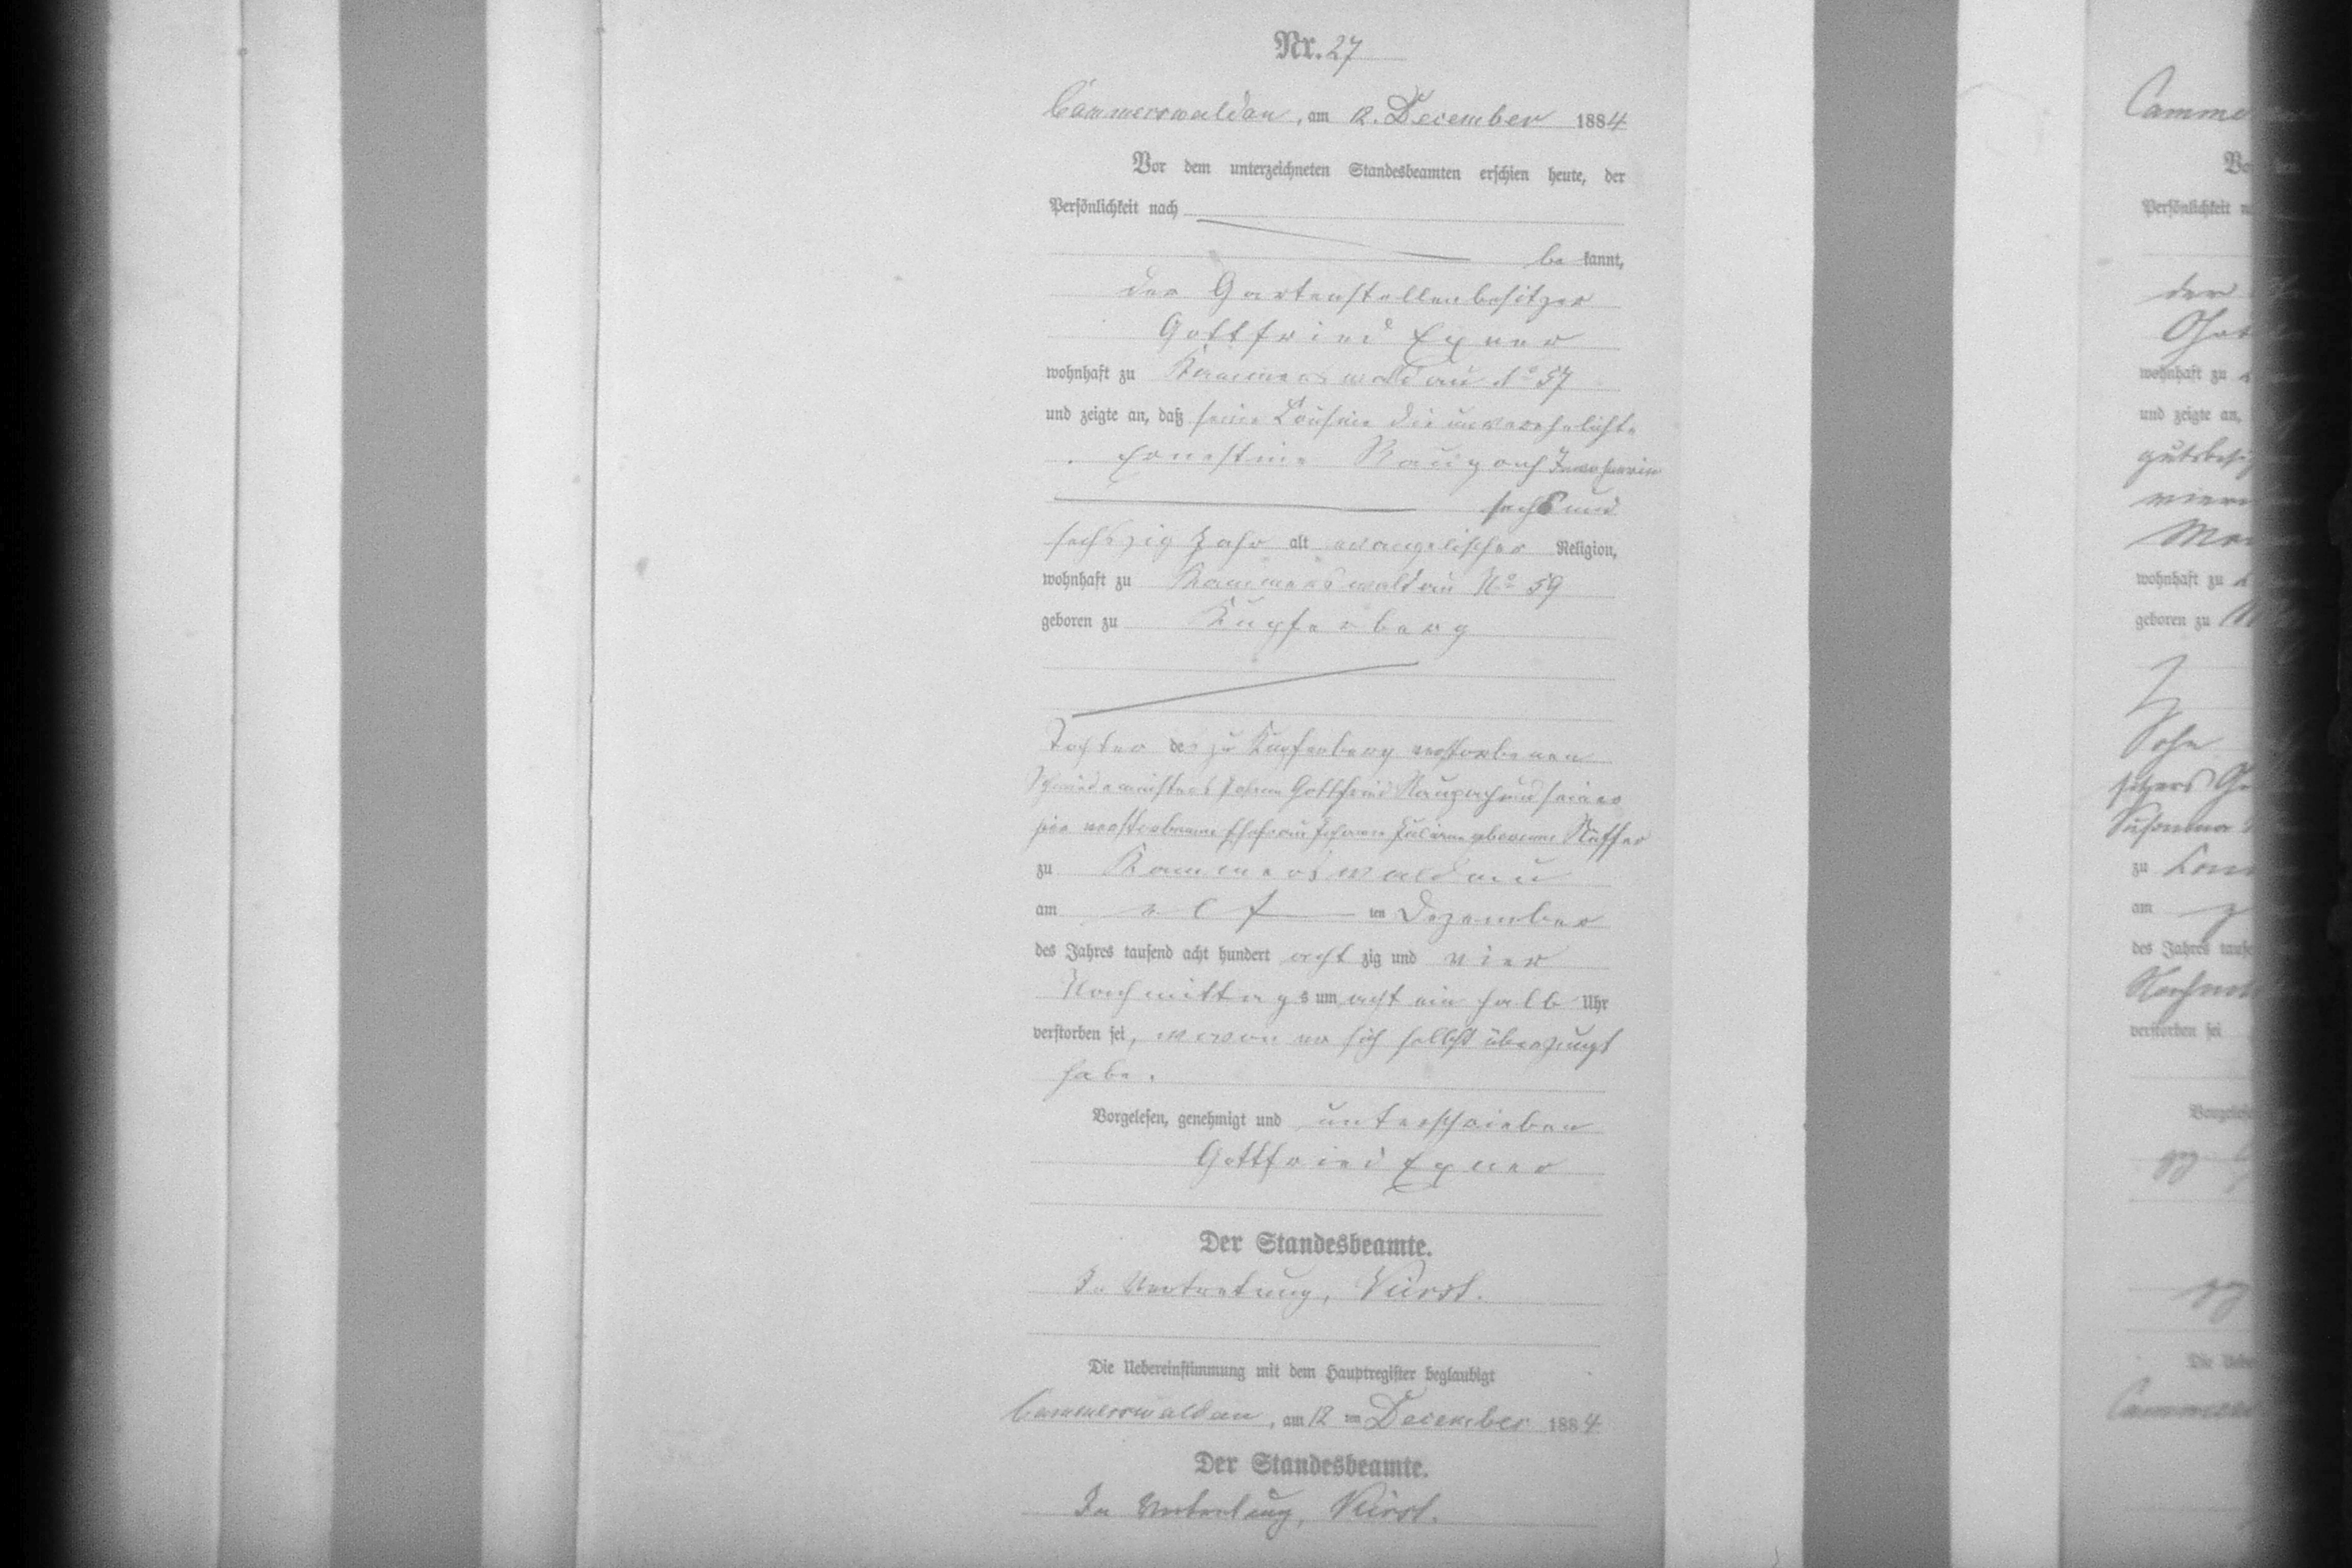 Nr. 27
Cammerswaldau, am 12. December 1884
Vor dem unterzeichneten Standesbeamten erschien heute, der
Persönlichkeit nach
be kannt,
der Gartenstellenbesitzer
Gottfried Exner
wohnhaft zu Kammerswaldau No 57
und zeigte an, daß seine Cousine die unverehelichte
Ernestine Raupach
sechs und
sechszig Jahr alt evangelischer Religion,
wohnhaft zu Kammerswaldau No 59
geboren zu Kupferberg
Tochter des zu Kupferberg verstorbenen
Schmiedemeisters Johann Gottfried Raupach und seiner
hier verstorbenen Ehefrau Johanne Juliane geborenne
zu Kammerswaldau
am elf ten Dezember
des Jahres tausend acht hundert acht zig und vier
Nachmittags um acht ein halb Uhr
verstorben sei, wovon er sich selbst überzeugt
habe.
Vorgelesen, genehmigt und unterschrieben
Gottfried Exner
Der Standesbeamte.
In Vertretung,
Die Uebereinstimmung mit dem Hauptregister beglaubigt
Cammerswaldau, am 12 ten December 1884
Der Standesbeamte.
In Vertretung,
Camme
Persönlichkeit
der
wohnhaft zu
und zeigte an,
gutsbesi
wohnhaft zu
geboren zu
Sohn
sitzers
zu
am
des Jahres
verstorben sei